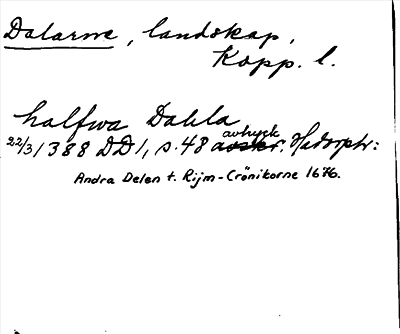 Dalarne, landskap,
Kopp. l.
halfwa Dahla
avtryck
22/3 1388 DD 1, s. 48 avskr. Hadorph:
Andra Delen t. Rijm-Crönikorne 1676.